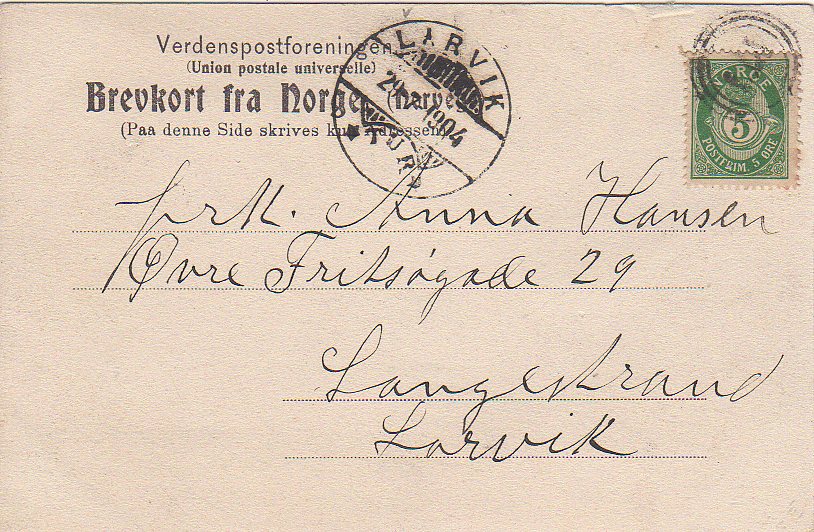 Verdenspostforeningen
(Union postale universelle)
Brevkort fra Norge (Norvège)
(Paa denne Side skrives kun Adressen)
LARVIK
1904
NORGE
5
POSTFRIM. 5 ØRE
frk. Anna Hansen
Øvre Fritsøgade 29
Langestrand
Larvik